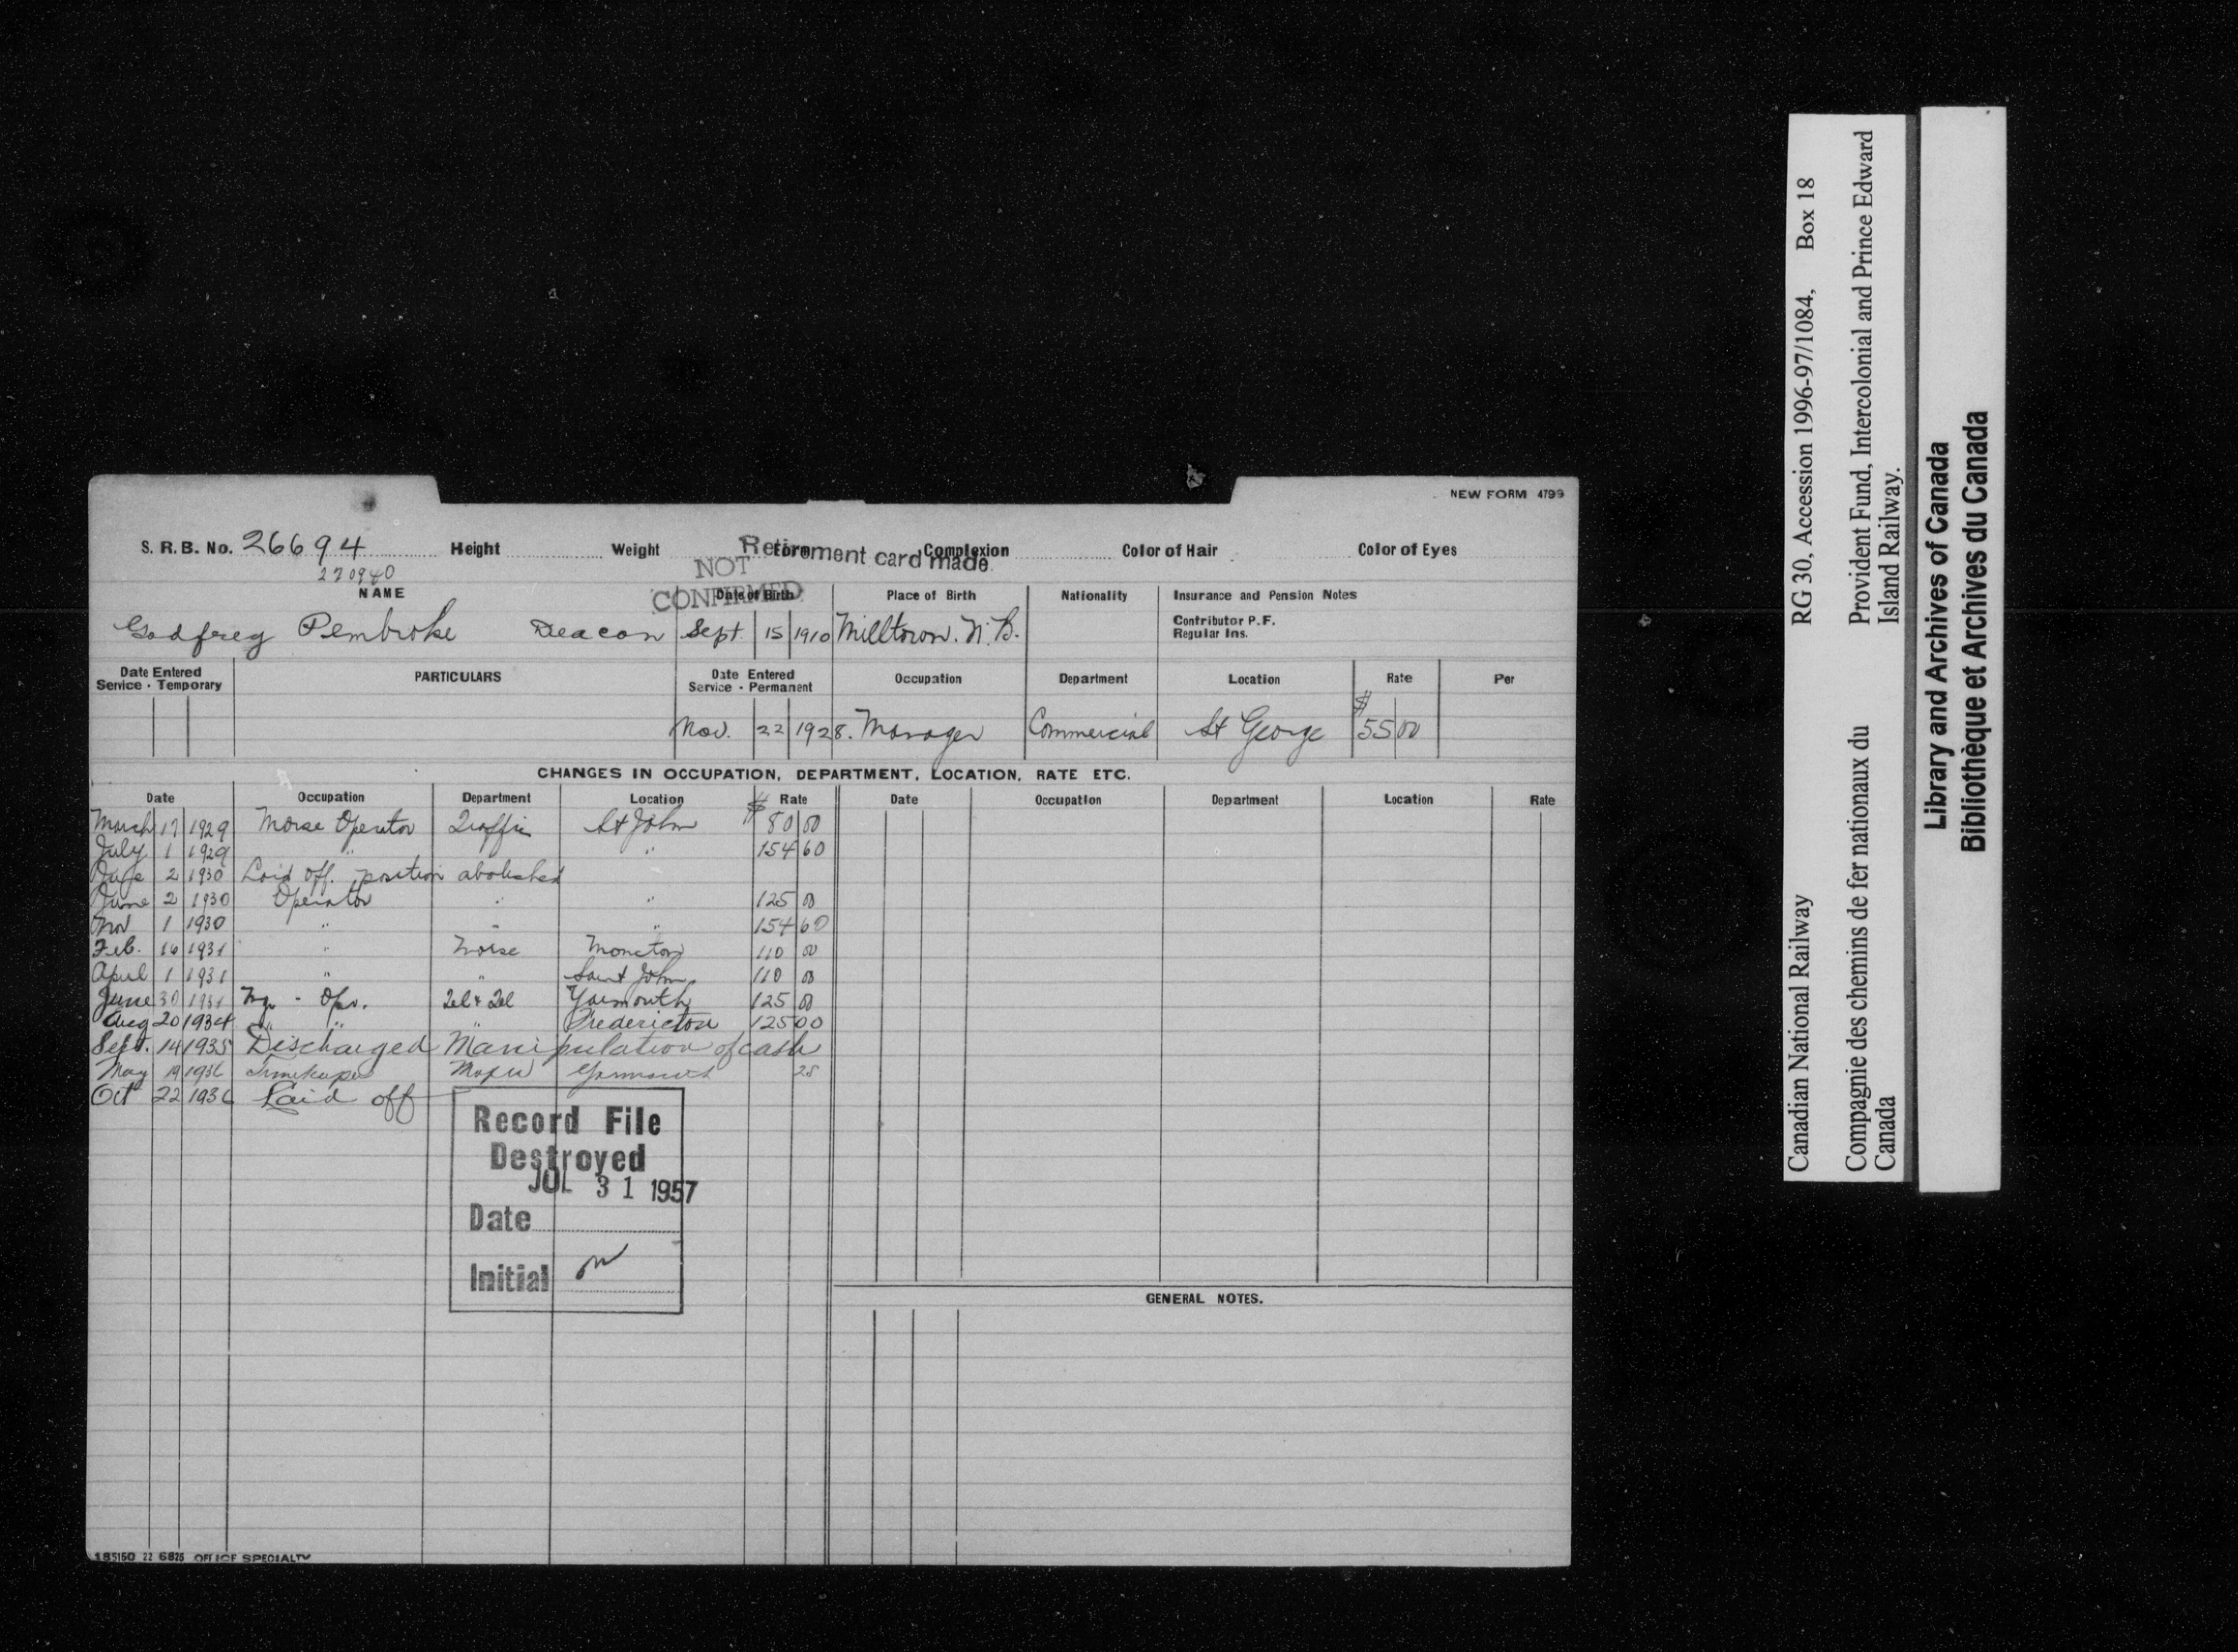 NEW FORM 4799
S. R. B. No. 26694 Height Weight Form Complexion Color of Hair Color of Eyes
Retirement card made
270940
NOT CONFIRMED
NAME Date of Birth Place of Birth Nationality Insurance and Pension Notes
Godfrey Pembroke Deacon Sept 15 1910 Milltown. N.B.
Contributor P.F.
Regular Ins.
Date Entered Service - Temporary PARTICULARS Date Entered Service - Permanent Occupation Department Location Rate Per
Nov. 22 1928. Manager Commercial St George $ 55 00
CHANGES IN OCCUPATION, DEPARTMENT, LOCATION, RATE ETC.
Date Occupation Department Location $ Rate Date Occupation Department Location Rate
March 17 1929 Morse Operator Traffic St John 80 00
July 1 1929 " " 154 60
2 1930 Laid off. position abolished
June 2 1930 Operator " " 125 00
Nov 1 1930 " " " 154 60
Feb. 16 1931 " Morse Moncton 110 00
April 1 1931 " " Saint John 110 00
June 30 1931 Mgr - Opr. Tel & Tel Yarmouth 125 00
Aug 20 1934 " " " Fredericton 125 00
Sept. 14 1935 Discharged Manipulation of cash
May 19 1936 Timekeeper Yarmouth 25
Oct 22 1936 Laid off
Record File
Destroyed
JUL 31 1957
Date
Initial
GENERAL NOTES.
185150 22 6828 OFFICE SPECIALTY
Canadian National Railway RG 30, Accession 1996-97/1084, Box 18
Compagnie des chemins de fer nationaux du Canada
Provident Fund, Intercolonial and Prince Edward Island Railway.
Library and Archives of Canada
Bibliothèque et Archives du Canada